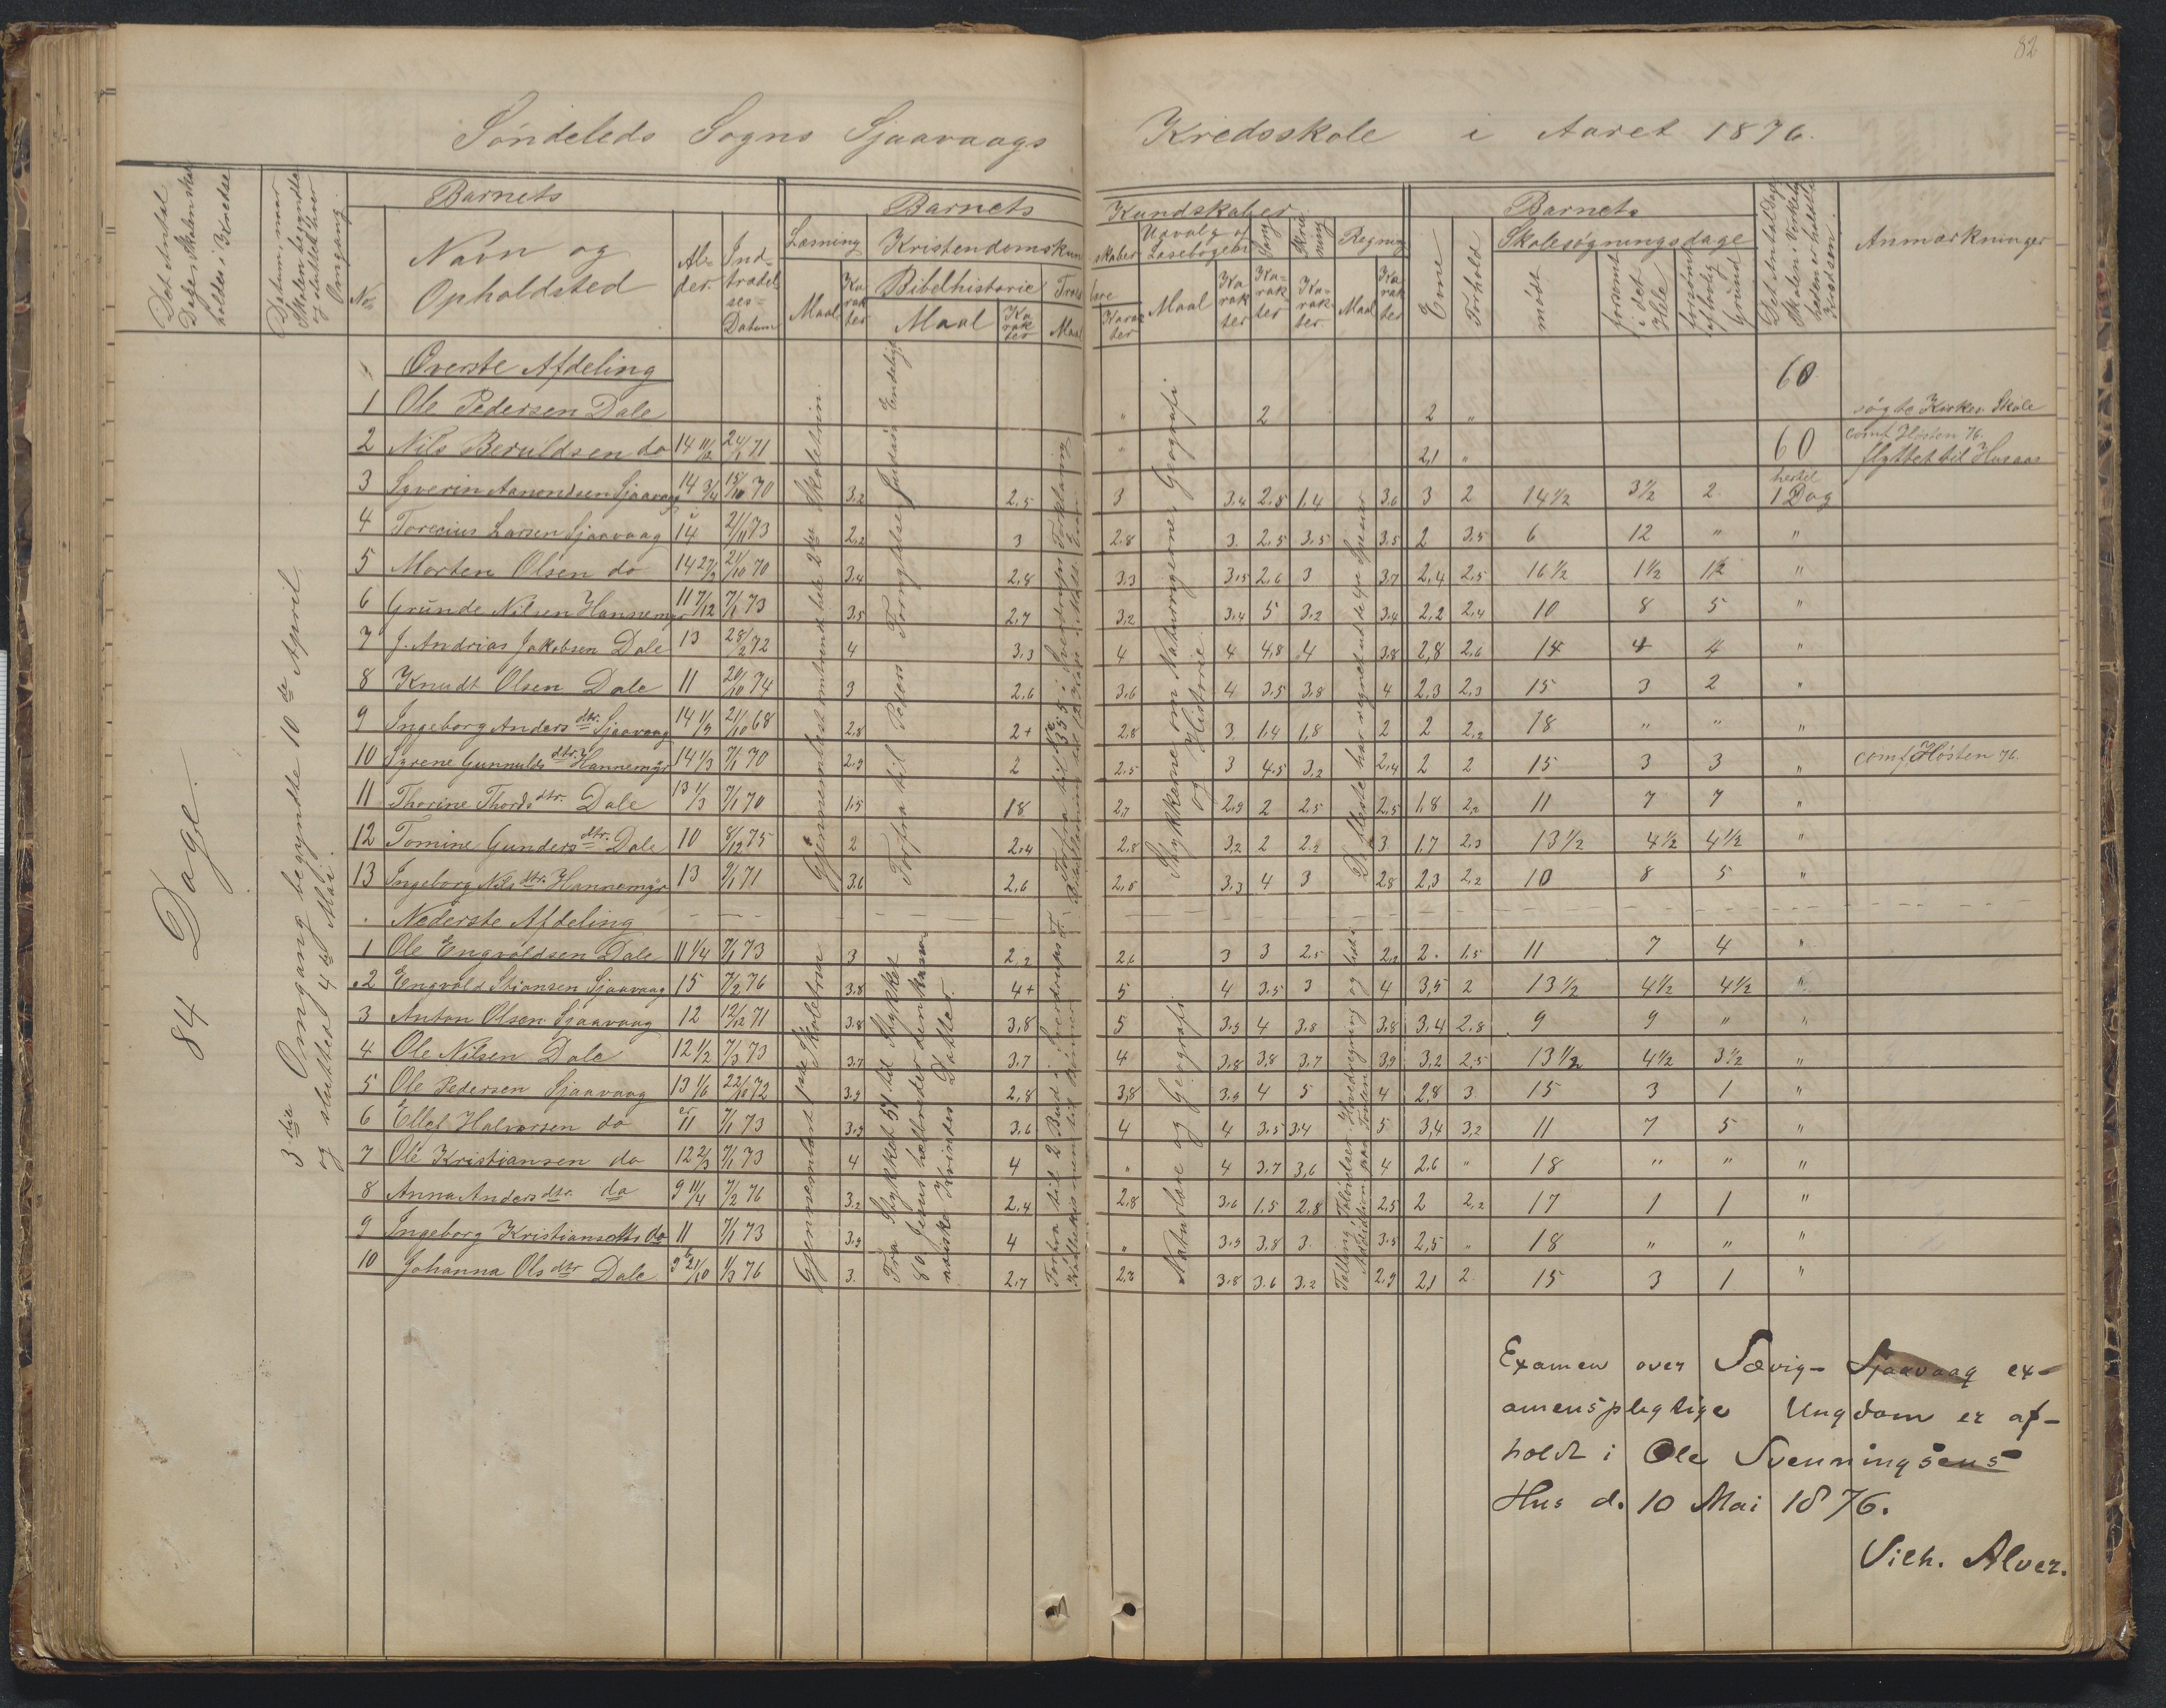 82
Söndeleds Sogns Sjaavaags Kredsskole i Aaret 1876.
Det Antal Dage Skolen skal holdes i Kredse
Datum, naar Skolen begyndte og sluttedes hver Omgang
Barnets
No
Navn og Opholdsted
Al-der
Ind-trædel-ses-Datum
Barnets Kundskaber
Læsning
Maal
Ka rak ter
Kristendomskundskaber
Bibelhistorie
Maal
Ka rak ter
Troeslære
Maal
Karak ter
Udvalg af Læsebogen
Maal
Ka rak ter
Sang
Ka-rak ter
Skriv ning
Ka-rak-ter
Regning
Maal
Ka rak ter
Barnets
Evne
Forhold
Skolesøgningsdage
mødt
forsømt i det Hele
forsømt af lovlig Grund
Det Antal Dage Skolen i Virkeligheden er holdt i Kredsen.
Anmærkninger
84 Dage.
3die Omgang begyndte 10de April
og sluttedes 4de Mai.
Øverste Afdeling 60
1 Ole Pedersen Dale " 2 2 " søgte Kirkes. Skole
2 Nils Beruldsen do 14 11/12 24/1 71 " 2,1 " 60 comf. Hösten 76. flyttet til Husaas
3 Syverin Aanondsen Sjaavaag 14 3/4 15/10 70 3.2 2.5 3 3.4 2.5 1.4 3.6 3 2 14 1/2 3 1/2 2 hertil 1 Dag
4 Torecius Larsen Sjaavaag 14 21/11 73 2.2 3 2.8 3. 2.5 3.5 3.5 2 3.5 6 12 " "
5 Morten Olsen do 21/10 70 3.4 2.8 3.3 3.5 2.6 3 3.7 2,4 2.5 16 1/2 1 1/2 "
6 Gründe Nilsen Hannemyr 11 7/12 7/1 73 3.5 2.7 3.2 3.4 5 3.2 3.4 2,2 2,4 10 8 5 "
7 J. Andrias Jakobsen Dale 13 28/2 72 4 3.3 4 4 4,8 4 3.8 2,8 2.6 14 4 4 "
8 Knudt Olsen Dale 11 20/10 74 3 2.6 3.6 4 3.5 3.8 4 2.3 2.3 15 3 2 "
9 Ingeborg Anders dtr. Sjaavaag 14 1/3 21/10 68 2.8 2+ 2.8 3. 1.4 1.8 2 2 2.2 18 " " "
10 Syrene Gunnulds dtr. Hannemyr 14 1/3 7/1 70 2.9 2 2.5 3 4.5 3.2 2.4 2 2 15 3 3 " comf. Hösten 76.
11 Thorine Thords dtr. Dale 13 1/3 7/1 70 1.5 18 2.7 2.9 2 2.5 2.5 1.8 2.2 11 7 7 "
12 Tomine Gunders dtr. Dale 10 8/12 75 2 2.4 2.8 3.2 2 2.2 3. 1.7 2.3 13 1/2 4 1/2 4 1/2 "
13 Ingeborg Nils dtr. Hannemyr 13 9/1 71 3.6 2.6 2.5 3.3 4 3 2.8 2,3 2.2 10 8 5 "
Gjennemlæst omtrent hele 2den Skoletrin.
Forfra til Peters Fængslelse, Judæin Endeligt
Stykkerne om Naturrigerne, Geografi og Historie
De fleste har regnet ud de 4re Species
Nederste Afdeling
1 Ole Engvoldsen Dale 11 1/4 7/1 73 3 2,2 2.6 3 3 2.5 2.2 2. 1.5 11 7 4 "
2 Engvold Stiansen Sjaavaag 15 7/2 76 3.8 4+ 5 4 3.5 3 4 3,5 2 13 1/2 4 1/2 4 1/2 "
3 Anton Olsen Sjaavaag 12 12/12 71 3.8 3,8 5 3.5 4 3.8 3.8 3.4 2.8 9 9 " "
4 Ole Nilsen Dale 12 1/2 7/3 73 3.7 3.7 4 3.8 3.8 3.7 3.9 3.2 2.5 13 1/2 4 1/2 3 1/2 "
5 Ole Pedersen Sjaavaag 13 1/6 22/10 72 3.9 2,8 3,8 3.9 4 5 4 2,8 3. 15 3 1 "
6 Ellef Halvorsen do 11 7/1 73 3.9 3.6 4 4 3.5 3.4 5 3,4 3,2 11 7 5 "
7 Ole Kristiansen do 12 2/3 7/1 73 4 4 " 4 3.7 3,6 4 2.6 " 18 " " "
8 Anna Anders dtr. do 9 11/4 7/2 76 3.2 2.4 2.8 3.6 1.5 2.8 2.5 2 2,2 17 1 1 "
9 Ingeborg Kristians dtr do 11 7/1 73 3.9 4 " 3.9 3.8 3. 3.5 2,5 " 18 " " "
10 Johanna Ols dtr Dale 1/3 76 3. 2.7 2.8 3.8 3.6 3.2 2.9 2,1 2 15 3 1 "
Gjennemlæst 1ste Skoletrin
Fra Stykket 57 til Stykket 80 Jesus helbreder den kananæiske Kvindes Datter.
Naturlære og Geografi
Examen over Sævig- Sjaavaag ex-
amenspligtige Ungdom er af-
holdt i Ole Svenningsens
Hus d. 10 Mai 1876.
Vilh. Alver.